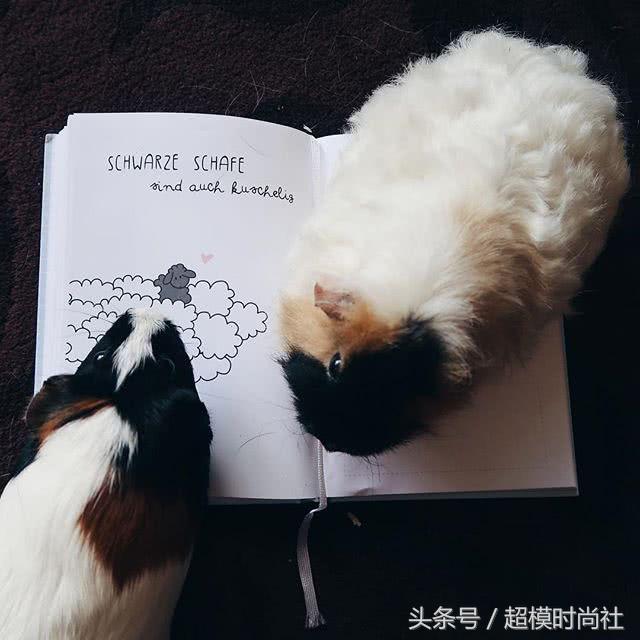 SCHWARZE SCHAFE
sind auch kuschelig
头条号 / 超模时尚社